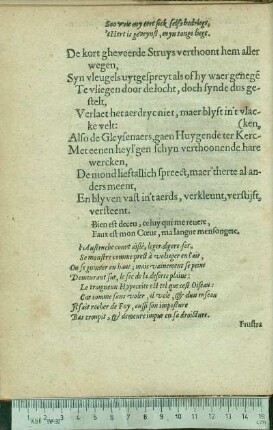 Soo wie my eert sick selfs bedriegt,
t'Hert is geveynst, myn tonge liegt.
De kort gheveerde Struys verthoont hem aller
wegen,
Syn vleugels uytgespreyt als of hy waer genegē
Te vliegen door de locht, doch synde dus ge-
stelt,
Verlaet het aerdryc niet, maer blyft in't vlac-
ke velt:
(ken,
Also de Gleysenaers, gaen Huygende ter Kerc-
Met eenen heyl'gen schyn verthoonende hare
wercken,
De mond lieftallich spreect, maer 'therte al an-
ders meent,
En blyven vast in't aerds, verkleunt, verstijft,
versteent.
Bien est deceu, celuy qui me revere,
Faux est mon Cœur, ma langue mensongere.
L'Austruche court aislé, leger
Se monstre comme prest à voltiger en l'air,
On se guinder en haut; mais vainement se peine
Demeurant sur le sec de la deserte plaine:
Le trompeur Hypocrite est tel que cest Oiseau:
Car comme sans voler, il vole,
de Foy, aussi son imposture
Bas trompit, & demeure en sa droiture.
Frustra